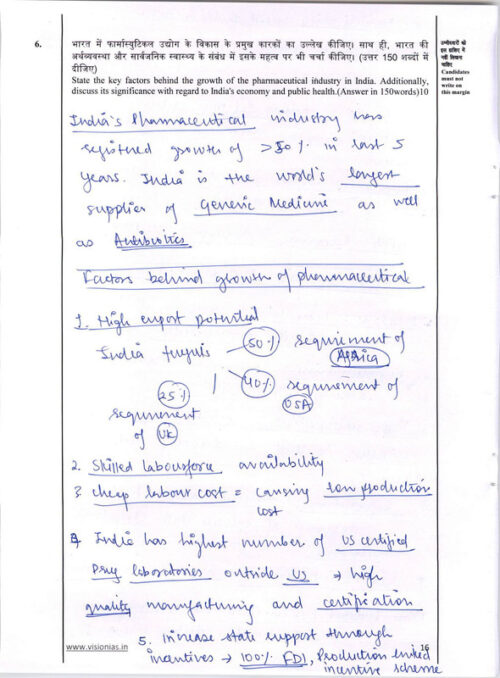 6.
भारत में फार्मास्युटिकल उद्योग के विकास के प्रमुख कारकों का उल्लेख कीजिए। साथ ही, भारत की
अर्थव्यवस्था और सार्वजनिक स्वास्थ्य के संबंध में इसके महत्व पर भी चर्चा कीजिए। (उत्तर 150 शब्दों में
दीजिए)
State the key factors behind the growth of the pharmaceutical industry in India. Additionally,
discuss its significance with regard to India's economy and public health.(Answer in 150words)10
उम्मीदवारों को
इस हाशिए में
नहीं लिखना
चाहिए
Candidates
must not
write on
this margin
India's Pharmaceutical industry has
registered growth of >50% in last 5
years. India is the world's largest
supplier of Generic Medicine as well
as Antibiotics
Factors behind growth of pharmaceutical
1. High export potential
India fulfils
50% requirement of
Africa
40% requirement of
USA
25%
requirement
of UK
2. Skilled labourforce availability
3 cheap labour cost = causing low production
cost
4 India has highest number of US certified
Drug laboratories outside US → high
quality manufacturing and certification
5. Increase state support through
incentives → 100% FDI, Production linked
incentive scheme
www.visionias.in
16